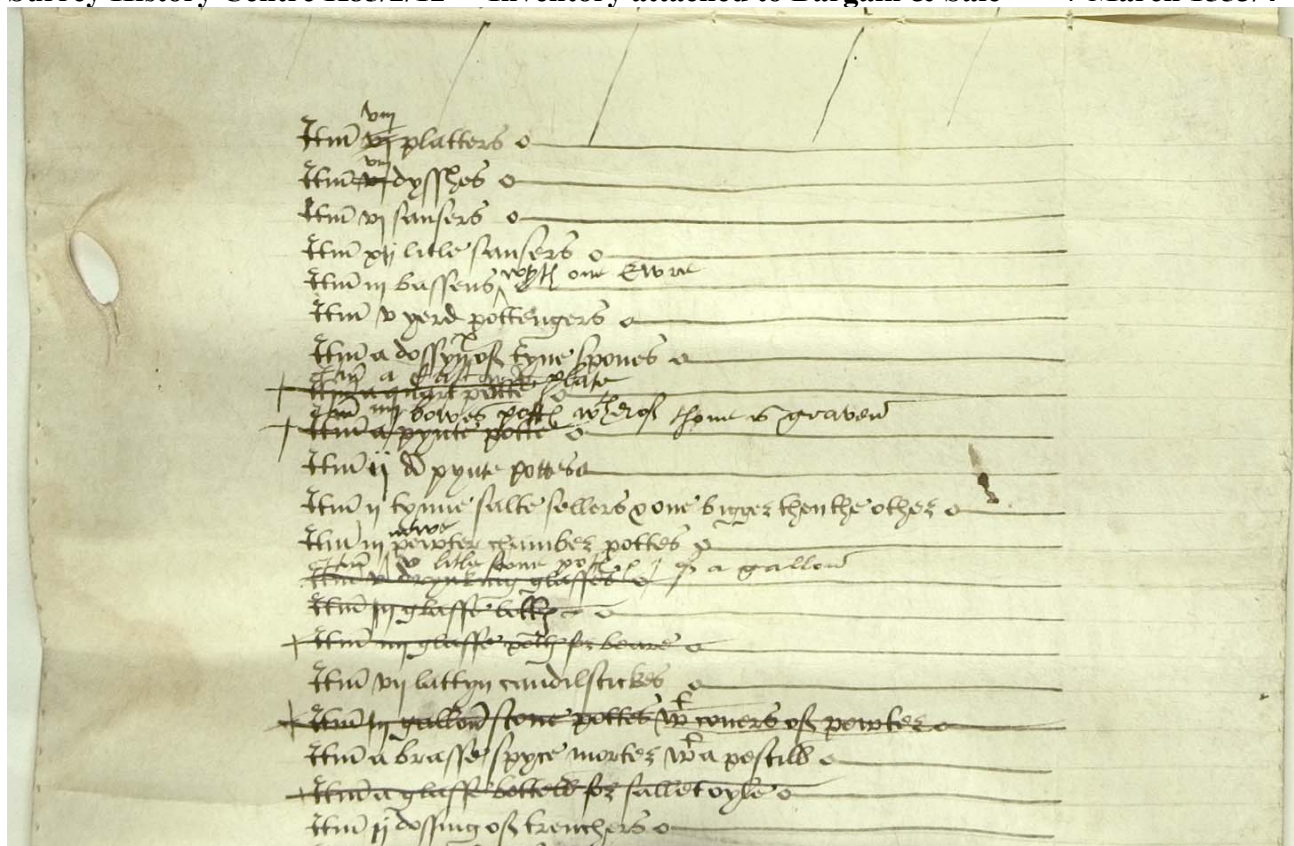 Itm viij vj platters
Itm viij vj dysshes
Itm vj sausers
Itm xij litle sausers
Itm iij bassens wyth one Ewre
Itm v yerd pottengers
Itm a dossyn of tyne spones
Itm a plate
Itm a quart potte
Itm iiij bowes potts wherof thone is graven
Itm a pynte potte
Itm ij di pynte pottes
Itm ij tynne salte sellers one bigger then the other
Itm iij newe pewter chamber pottes
Itm v litle stone potts of a gallon
Itm v drynking glasses
Itm iij glasse
Itm iiij glasse potts for beare
Itm vij lattyn candilstickes
Itm iij gallon stone pottes wt covers of pewter
Itm a brasse spyce morter wt a pestill
Itm a glasse bottell for sallet oyle
Itm ij dossing of trenchers